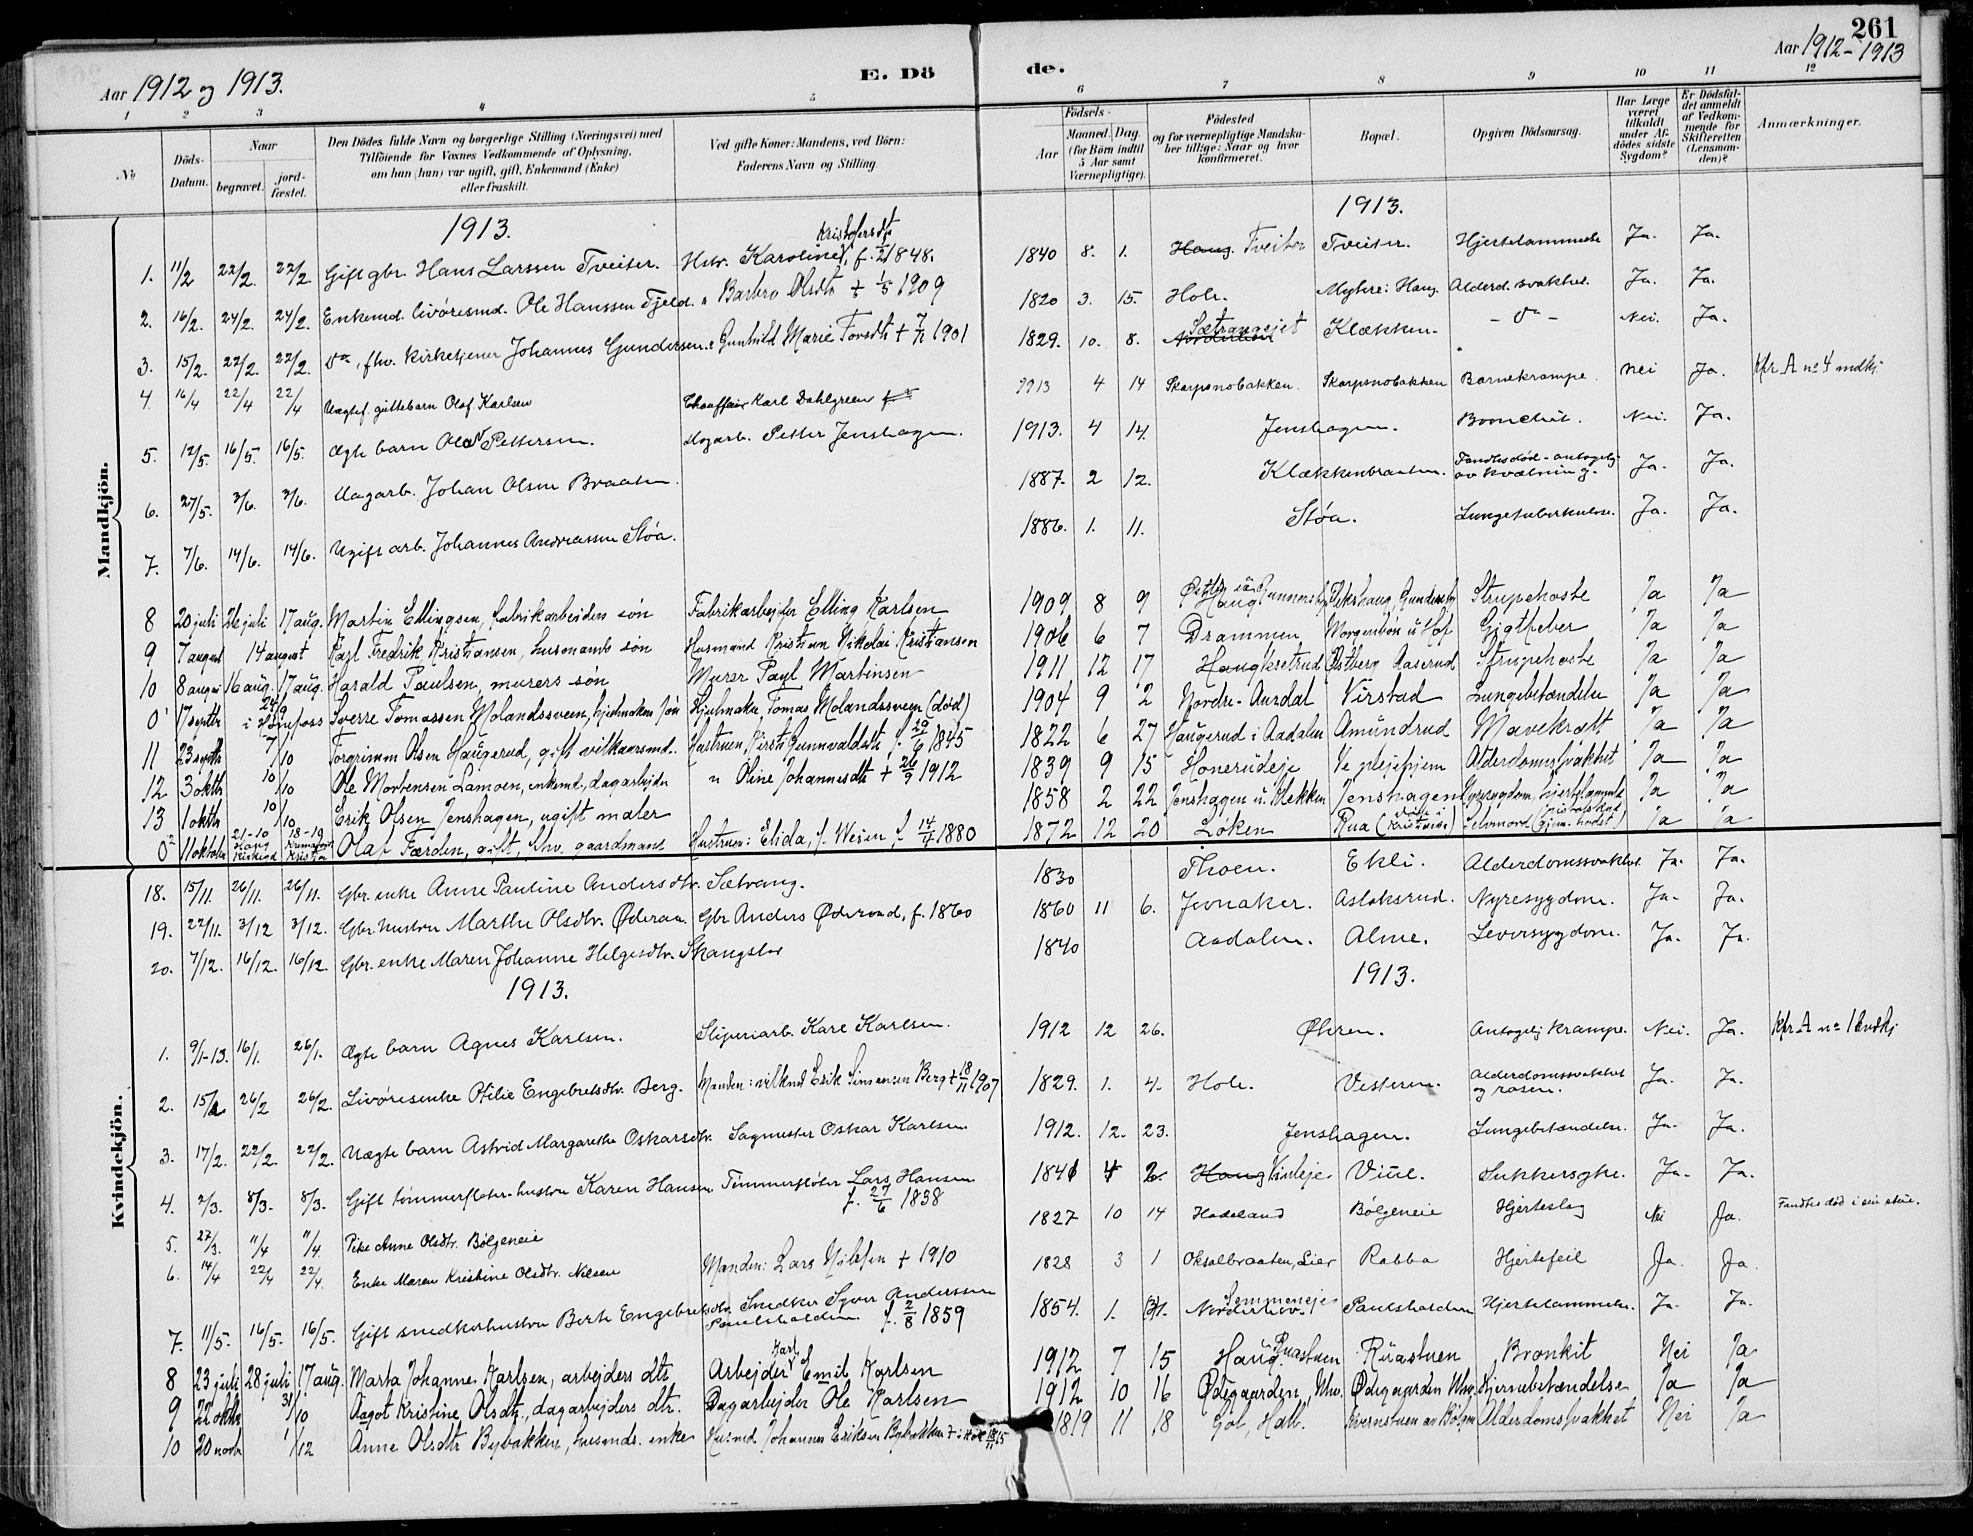 261
Aar 1912 og 1913.
E. Dö de.
Aar 1912-1913
1 2 3 4 5 6 7 8 9 10 11 12
No
Döds-Datum.
Naar begravet. jordfæstet.
Den Dödes fulde Navn og borgerlige Stilling (Næringsvei) med Tilföiende for Voxnes Vedkommende af Oplysning, om han (hun) var ugift, gift, Enkemand (Enke) eller fraskilt.
Ved gifte Koner: Mandens, ved Börn: Faderens Navn og Stilling.
Födsels-
Aar Maaned. Dag. (for Börn indtil 5 Aar samt Værnepligtige).
Födested og for værnepligtige Mandskaber tillige: Naar og hvor konfirmeret.
Bopæl.
Opgiven Dödsaarsag.
Har Læge været tilkaldt under Afdödes sidste Sygdom?
Er Dödsfaldet anmeldt af Vedkommende for Skifteretten (Lensmanden)?
Anmærkninger.
Mandkjön.
1913. 1913.
1. 11/2 22/2. 22/2 Gift gbr. Hans Larssen Tveiter. Hstr. Karoline Kristofersdtr f. 1848. 1840 8. 1. Haug Tveiter Tveiter. Hjertelammelse Ja. Ja.
2. 16/2. 24/2. 24/2. Enkemd. livöresmd. Ole Hanssen Fjeld. " Barbro Olsdtr + 1/5 1909 1820 3. 15. Hole. Alderd. svakhed. Ja. Ja.
3. 15/2. 22/2. 22/2. do, fhv. kirketjener Johannes Gundersen. " Gunhild Marie Tovsdtr + 1901 1829. 10. 8. Klækken. - do - Nei. Ja.
4. 16/4 22/4 22/4 Uægtef. guttebarn Olaf Karlsen Chauffør Karl Dahlgreen 1913 4 14 Skarpsnobakken. Skarpsnobakken Barnekrampe. nei Ja. Kfr. A no 4 mdkj
5. 12/5. 16/5. 16/5. Ægte barn Olav Pettersen. dagarb. Petter Jenshagen. 1913. 4 14. Jenshagen. Bronchit. Nei. Ja.
6. 27/5. 3/6. 3/6. Dagarb. Johan Olsen Braaten 1887. 2 12. Klækkenbraaten. Fandtes död - antagelig av kvælning. Ja. Ja.
7. 7/6. 14/6. 14/6. Ugift arb. Johannes Andreassen Støa. 1886. 1. 11. Støa. Lungetuberkulose. Ja. Ja.
8 20 juli 26 juli 17 aug. Martin Ellingsen, fabrikarbeiders søn Fabrikarbejder Elling Karlsen 1909 8 9 Haug Strupehoste Ja Ja
9 7 august 14 august Karl Fredrik Kristiansen, husmands søn Husmand Kristian Nikolai Kristiansen 1906 6 7 Drammen Morgenbøn u Hof Gigtfeber Ja Ja
10 8 august 16 aug. 17 aug. Harald Paulsen, murers søn Murer Paul Martinsen 1911 12 17 Haug Østberg Aaserud Strupehoste Ja Ja
0¹ 17 septbr 24/9 i Hønefoss Sverre Tomassen Molandssveen, hjulmakers søn Hjulmaker Tomas Molandssveen (død) 1904 9 2 Nordre-Aurdal Virstad Lungebetændelse Ja Ja
11 23 septbr 7/10 Torgrimm Olsen Haugerud, gift vilkaarsmd. Hustruen, Kirsti Gunnvaldsdtr f. 29/6 1845 1822 6 27 Haugerud i Aadalen Amundrud Mavekræft Ja Ja
12 3 oktbr 10/10 Ole Mortensen Lamoen, enkemd., dagarbejder " Oline Johannesdtr + 26/9 1912 1839 9 15 Hønerudeje Ve plejehjem Alderdomssvakhet Ja Ja
13 1 oktbr 10/10 Erik Olsen Jenshagen, ugift maler 1858 2 22 Jenshagen u. Klekken Jenshagen Nyresygdom, hjertelammelse Ja Ja
0² 11 oktober 21-10 Haug Kirkegd 18-19 Kristia Olaf Færden, gift, fhv. gaardmand Hustruen: Elida, f. Wesen f. 14/4 1880 1872 12 20 Løken Rua Selvmord Ja Ja
Kvindekjön.
18. 15/11. 26/11. 26/11. Gbr. enke Anne Pauline Andersdtr. Sætrang. 1830 Thoen. Ekli. Alderdomssvakhet Ja. Ja.
19. 22/11. 3/12 3/12. Gbr. hustru Marthe Olsdtr. Øderaa Gbr Anders Øderaad, f. 1860 1860 11 6. Jevnaker. Aslaksrud. Nyresygdom. Ja. Ja.
20. 7/12. 16/12. 16/12. Gbr. enke Maren Johanne Helgesdtr. Skaugster 1840 Aadalen. Alme. Leversygdom. Ja. Ja.
1913. 1913.
1. 9/1-13. 16/1. 26/1. Ægte barn Agnes Karlsen. Sliperiarb. Karl Karlsen. 1912 12 26. Øhren. Antagelig krampe. Nei. Ja. Kfr. A no 1 kvdkj
2. 15/2 26/2 26/2. Livøresenke Otilie Engebretsdtr. Berg. Manden: vilkmd Erik Simensen Berg + 18/11 1907 1829. 1. 4. Hole. Vesteren. Alderdomssvakhet og rosen. Ja. Ja.
3. 17/2. 22/2. 22/2. Uægte barn Astrid Margarethe Oskarsdtr. Sagmester Oskar Karlsen 1912. 12. 23. Jenshagen. Lungebetændelse. Ja. Ja.
4. 2/3. 8/3. 8/3. Gift tømmerfløter-hustru Karen Hansen Tømmerfløter Lars Hansen f. 27/6 1838 1841 4 2. Haug Viuleje Viul. Sukkersyke. Ja. Ja.
5. 27/3. 11/4 11/4. Pike Anne Olsdtr. Bølgeneie 1827 10 14 Hadeland Bølgeneie Hjerteslag Nei Ja. Fandtes död i sin stue.
6. 14/4 22/4 22/4. Enke Maren Kristine Olsdtr. Nilsen Manden: Lars Nilssen + 1910 1828 3 1 Oksalbraaten, Lier Rabba Hjertefeil Ja. Ja.
7. 11/5. 16/5. 16/5. Gift snedkerhustru Berte Engebretsdtr. Snedker Syver Anderssen Paulsholden f. 2/8 1859 1854. 1. Norderhov. Paulsholden Hjertelammelse. Ja. Ja.
8 23 juli 28 juli 17 aug. Marta Johanne Karlsen, arbejders dtr Arbejder Karl Emil Karlsen 1912 7 15 Haug. Ruastuen Ruastuen Bronkit Nei Ja
9 22 oktbr 31/10 Aagot Kristine Olsdtr., dagarbejders dtr. Dagarbejder Ole Karlsen 1912 10 16 Ødegaarden, Nhv. Ødegaarden Nhv. Hjernebetændelse Ja Ja
10 20 novb 1/12 Anne Olsdtr Bybakken, husmds. enke Husmd. Johannes Eriksen Bybakken 1819 11 18 Gol, Hall. Kvernstuen av Bølgen Alderdomssvakhet Nei Ja